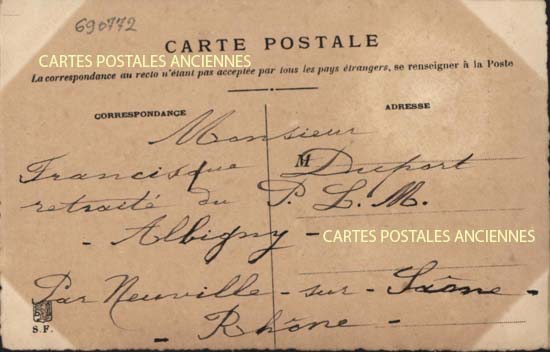 690772
CARTE POSTALE
CARTES POSTALES ANCIENNES
La correspondance au recto n'étant pas acceptée par tous les pays étrangers, se renseigner à la Poste
CORRESPONDANCE
ADRESSE
Monsieur
Francisque M Duport
retraité du P. L. M.
- Albigny -
CARTES POSTALES ANCIENNES
Par Neuville - sur - Saône -
- Rhône -
S. F.